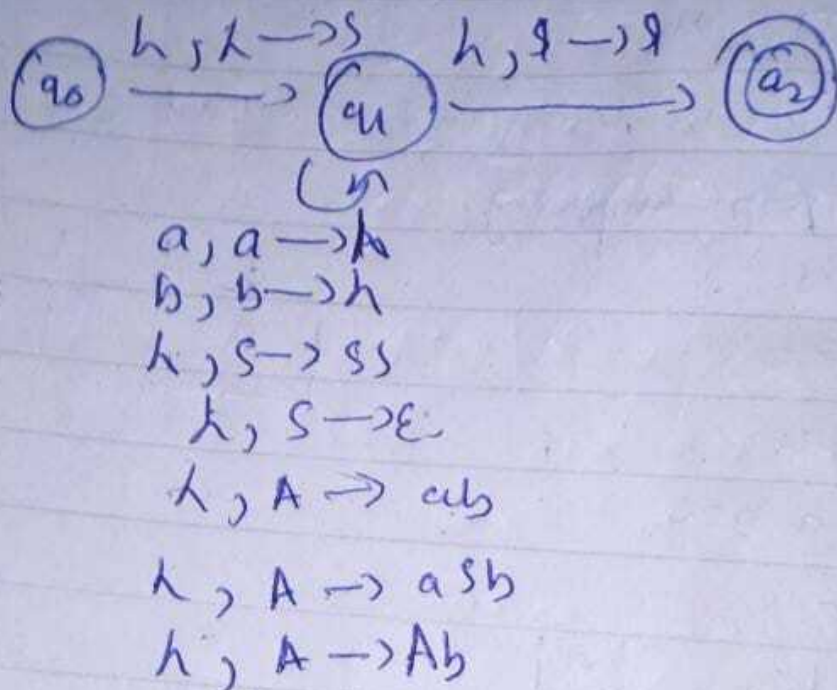 q0 λ, λ → S q1 λ, $ → $ q2
a, a → λ
b, b → λ
λ, S → SS
λ, S → ε
λ, A → ab
λ, A → aSb
λ, A → Ab